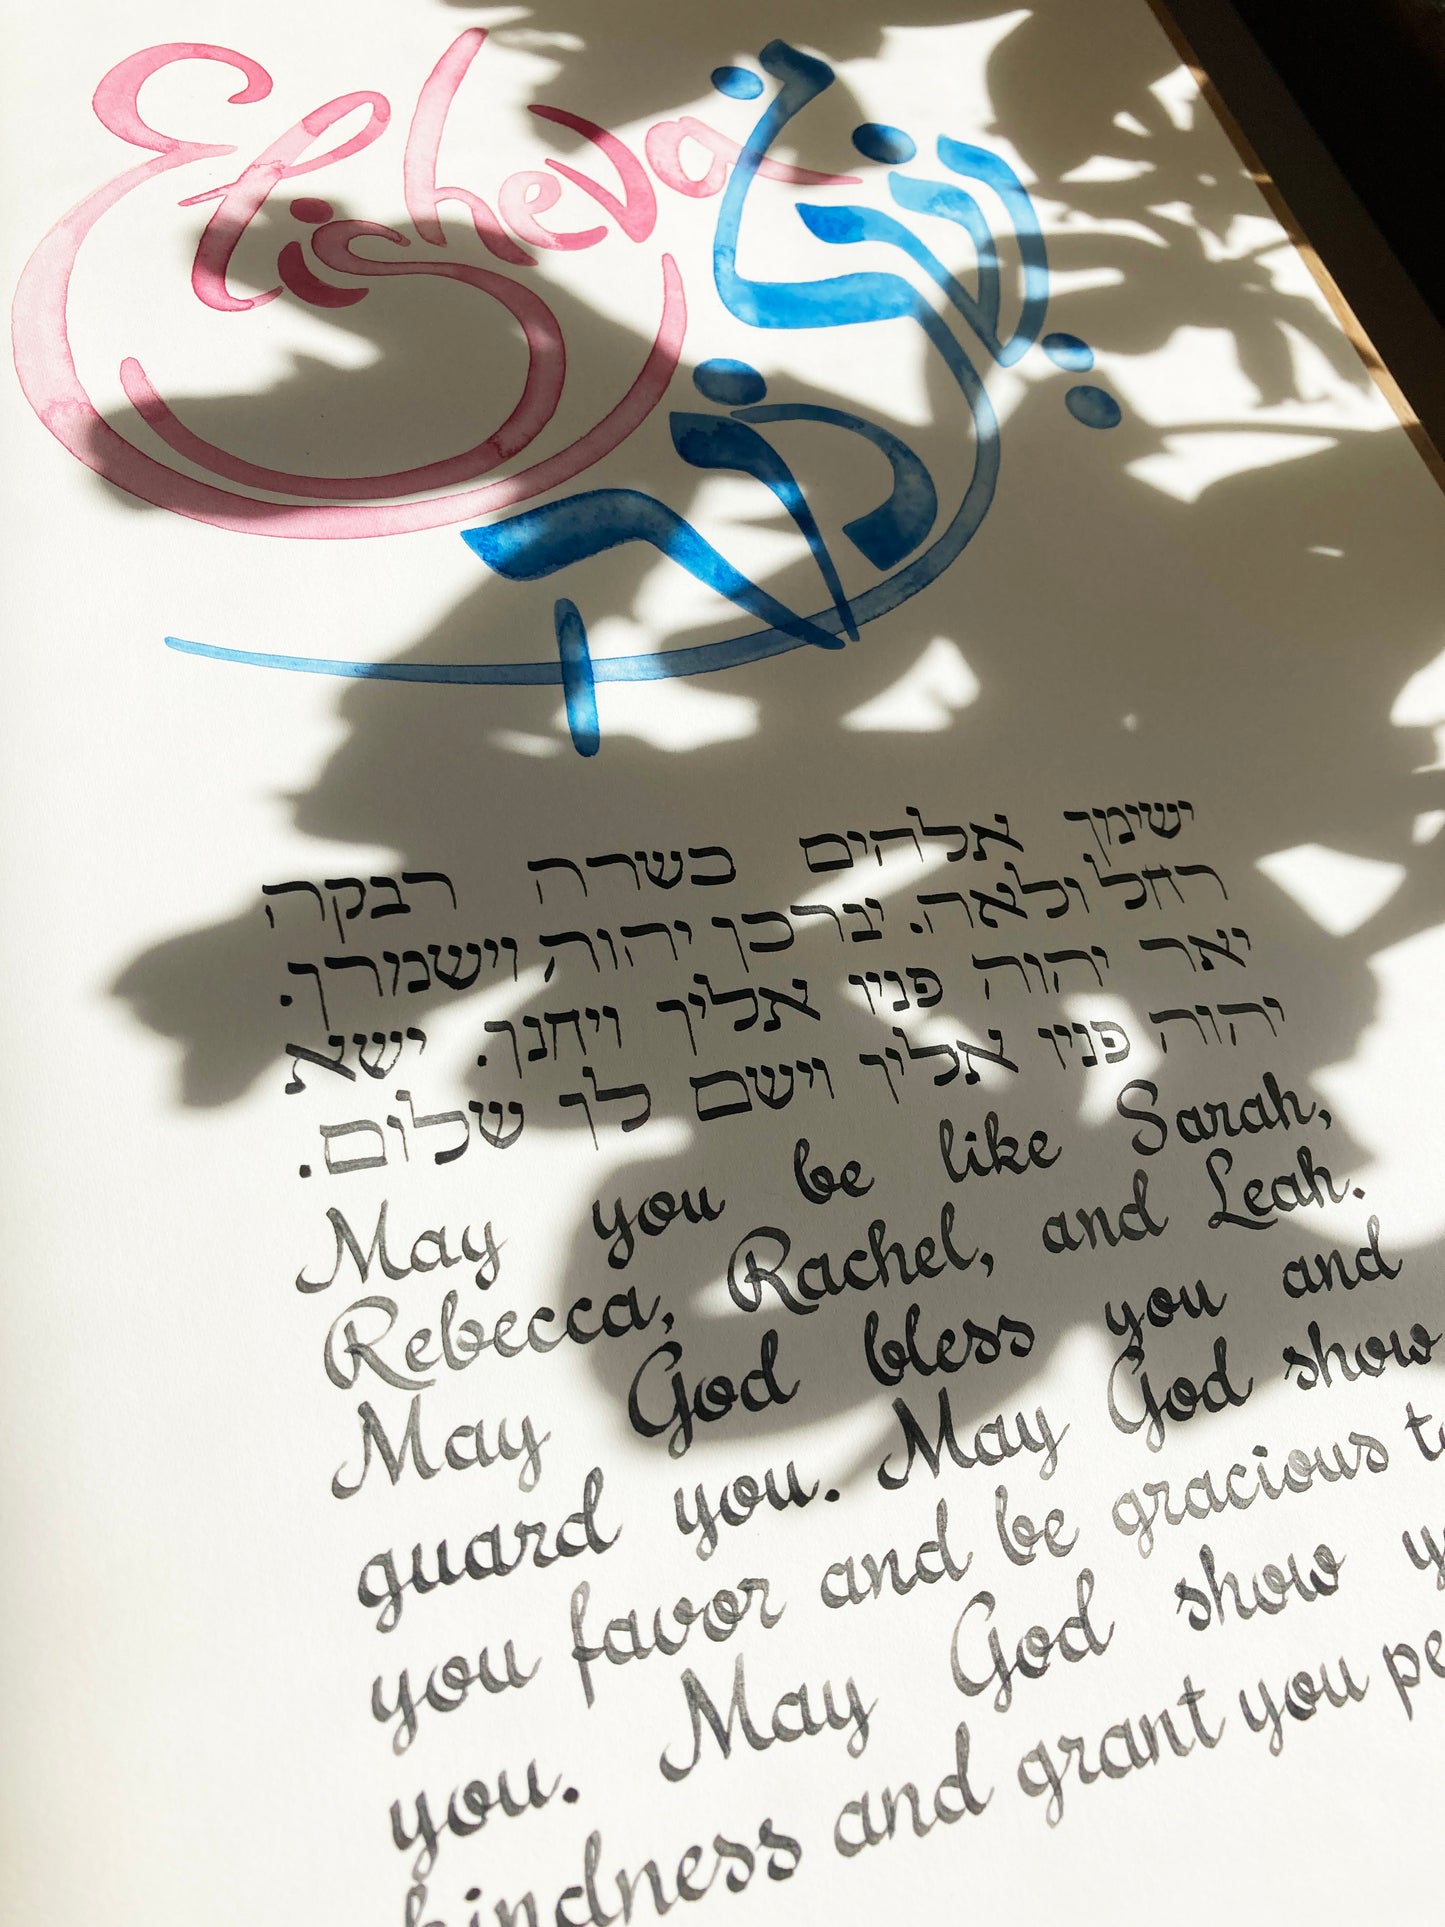 Elisheva
ישימך אלהים כשרה רבקה
רחל ולאה. יברכך יהוה וישמרך.
יאר יהוה פניו אליך ויחנך. ישא
יהוה פניו אליך וישם לך שלום.
May you be like Sarah,
Rebecca, Rachel, and Leah.
May God bless you and
guard you. May God show
you favor and be gracious to
you. May God show y
kindness and grant you pe